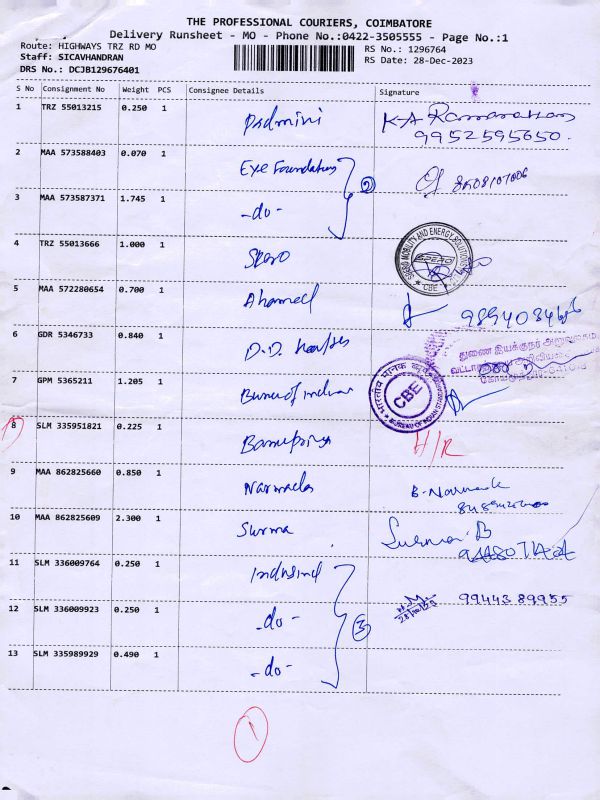 THE PROFESSIONAL COURIERS, COIMBATORE
Delivery Runsheet - MO - Phone No.:0422-3505555 - Page No.:1
Route: HIGHWAYS TRZ RD MO
RS No.: 1296764
Staff: SICAVHANDRAN
RS Date: 28-Dec-2023
DRS No.: DCJB129676401
S No Consignment No Weight PCS Consignee Details Signature
1 TRZ 55013215 0.250 1 Padmini K-A Ramanathan
9952595650.
2 MAA 573588403 0.070 1 Eye Foundation
② 8508107006
3 MAA 573587371 1.745 1 -do-
4 TRZ 55013666 1.000 1 Spero
SPERO MOBILITY AND ENERGY SOLUTIONS
SPERO
CBE
5 MAA 572280654 0.700 1 Ahamed
6 GDR 5346733 0.840 1 D.D.
துணை இயக்குநர் அலுவலகம்
7 GPM 5365211 1.205 1 Bureau of Indian
भारतीय मानक ब्यूरो
CBE
BUREAU OF INDIAN STANDARDS
8 SLM 335951821 0.225 1 Banupriya H/R
9 MAA 862825660 0.850 1 Narmada B-Narmada
10 MAA 862825609 2.300 1 Surma B
11 SLM 336009764 0.250 1 Indusind
99443 89955
12 SLM 336009923 0.250 1 -do- ③
13 SLM 335989929 0.490 1 -do-
1